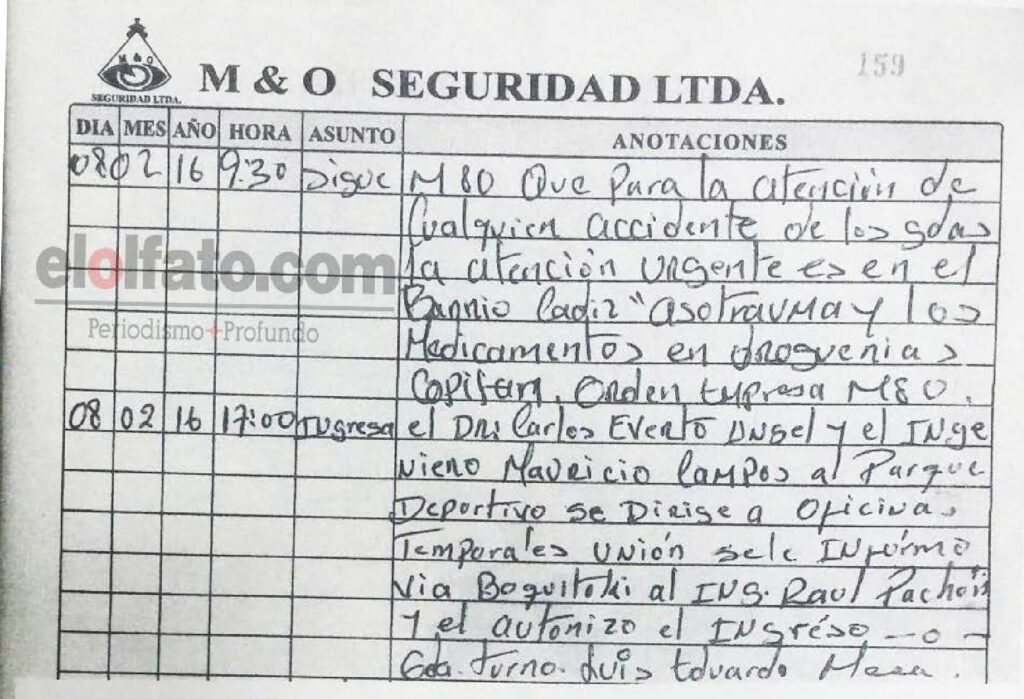 M & O
SEGURIDAD LTDA.
159
M & O SEGURIDAD LTDA.
DIA MES AÑO HORA ASUNTO ANOTACIONES
08 02 16 9:30 Sigue M80 Que Para la atención de
Cualquier accidente de los gdas
la atención urgente es en el
Barrio Cadiz "asotrauma y los
elolfato.com
Periodismo+Profundo
Medicamentos en droguerias
Copifam. Orden Empresa M80.
08 02 16 17:00 Ingresa el DR: Carlos Everto Ángel y el INge
niero Mauricio Campos al Parque
Deportivo se Dirige a Oficinas
Temporales Unión se le INformó
Via Boquitoki al ING. Raul Pachón
y el autorizo el INgreso --o-
Gda. turno. Luis Eduardo